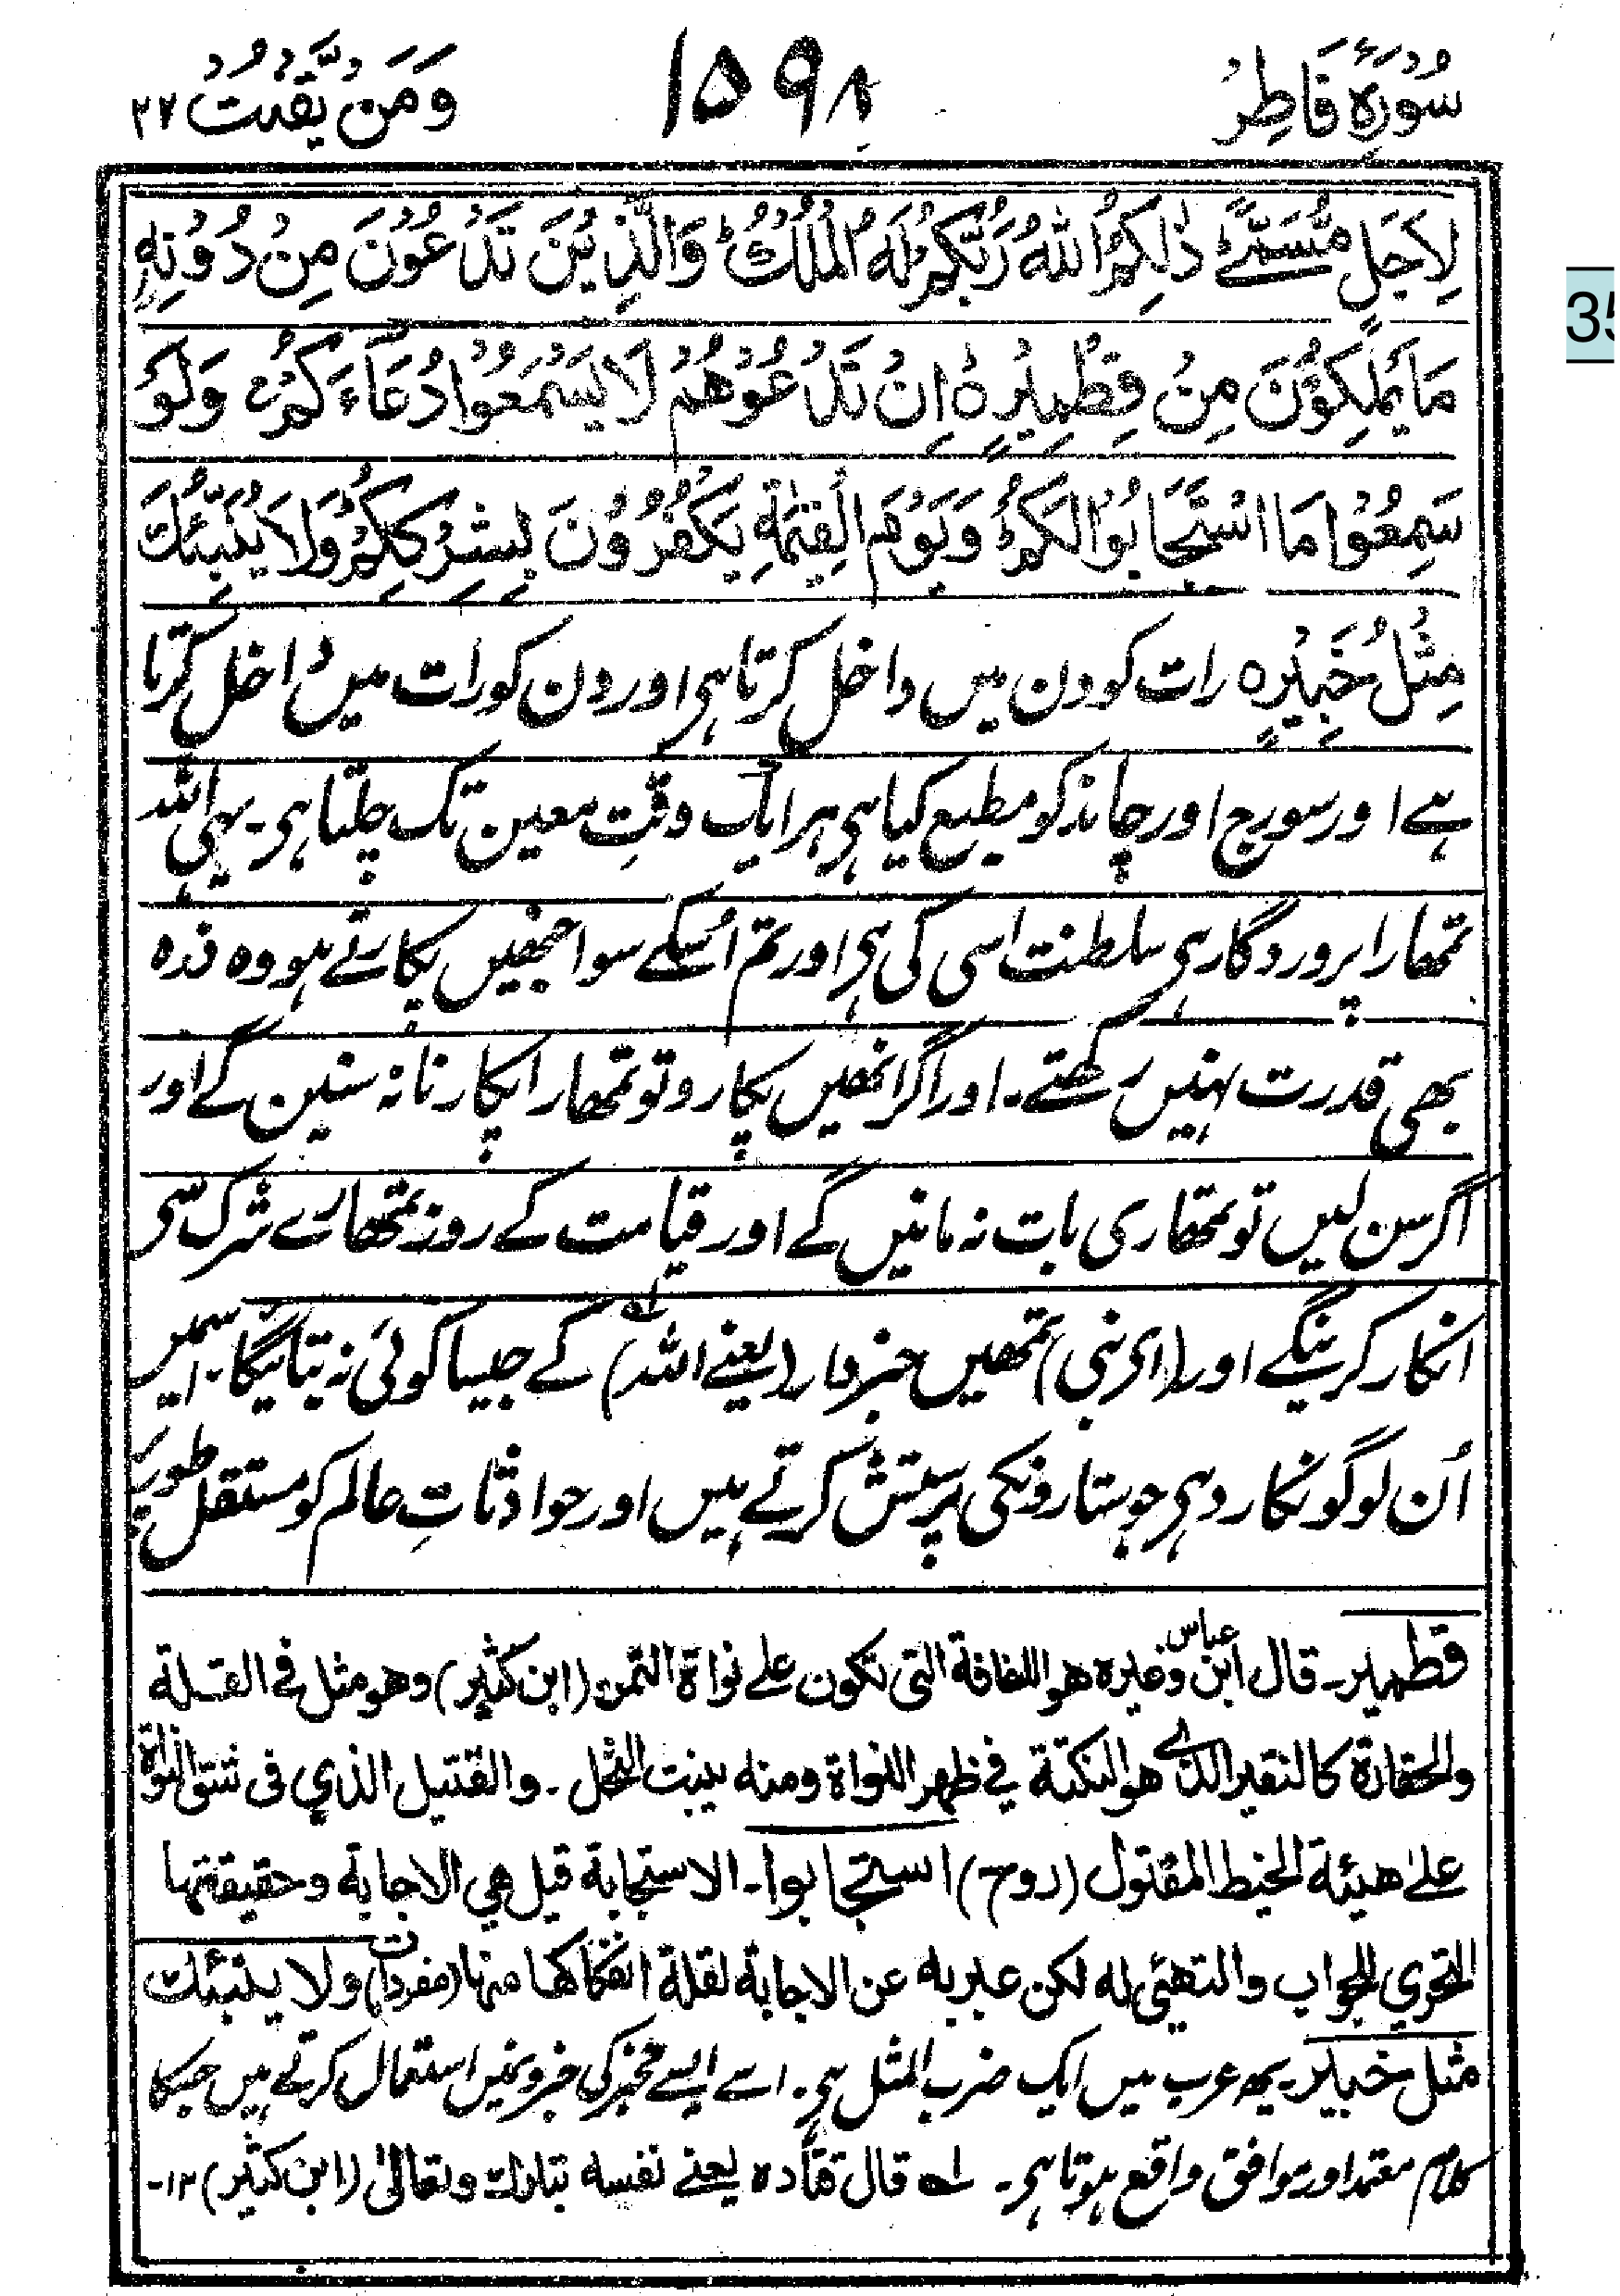 سُوْرَةُ فَاطِرْ
۱۵۹۸
وَمَنْ يَّقْنُتْ ۲۲
35
لِاَجَلٍ مُّسَمًّىؕ ذٰلِكُمُ اللّٰهُ رَبُّكُمْ لَهُ الْمُلْكُؕ وَالَّذِيْنَ تَدْعُوْنَ مِنْ دُوْنِهٖ
مَا يَمْلِكُوْنَ مِنْ قِطْمِيْرٍ ۝ اِنْ تَدْعُوْهُمْ لَا يَسْمَعُوْا دُعَآءَكُمْ ۚ وَلَوْ
سَمِعُوْا مَا اسْتَجَابُوْا لَكُمْؕ وَيَوْمَ الْقِيٰمَةِ يَكْفُرُوْنَ بِشِرْكِكُمْؕ وَلَا يُنَبِّئُكَ
مِثْلُ خَبِيْرٍ ۝ رات کو دن میں داخل کرتا ہی اور دن کو رات میں داخل کرتا
ہے اور سورج اور چاند کو مطیع کیا ہی ہر ایک وقتِ معین تک چلتا ہی۔ یہی اللہ
تمھارا پروردگار ہی سلطنت اسی کی ہی اور تم اُسکے سوا جنھیں پکارتے ہو وہ ذرہ
بھی قدرت نہیں رکھتے۔ اور اگر انھیں پکارو تو تمھارا پکارنا نہ سنین گے اور
اگر سن لیں تو تمھاری بات نہ مانیں گے اور قیامت کے روز تمھارے شرک سی
انکار کرینگے اور (ای نبی) تمھیں خبردار (یعنے اللہ) لہ کے جیسا کوئی نہ بتائیگا۔ اسمیں
اُن لوگونکا رد ہی جو ستارونکی پرستش کرتے ہیں اور حوادثاتِ عالم کو مستقل طور پر
قطمیر۔ قال ابن عباس وغیرہ ھو اللفافة التی تکون علے نواة التمر۔ (ابن کثیر) وھو مثل فی القلة
والحقارة کالنقیر الذے ھو النکتة فی ظھر النواة ومنه ینبت النخل۔ والفتیل الذي فی شق النواة
علےٰ ھیئة الخیط المفتول (روح) استجابوا۔ الاستجابة قیل ھي الاجابة وحقیقتھا
التحري للجواب والتھیٔ له لکن عبر به عن الاجابة لقلة انفکاکھا منھا (مفردات) ولا ینبئك
مثل خبیر۔ یہ عرب میں ایک ضرب المثل ہی۔ اسے ایسے مخبر کی خبرونمیں استعمال کرتے ہیں جسکا
کلام معتمد اور موافق واقع ہوتا ہی۔ لہ قال قتادہ یعنے نفسه تبارك وتعالیٰ (ابن کثیر) ۱۲۔